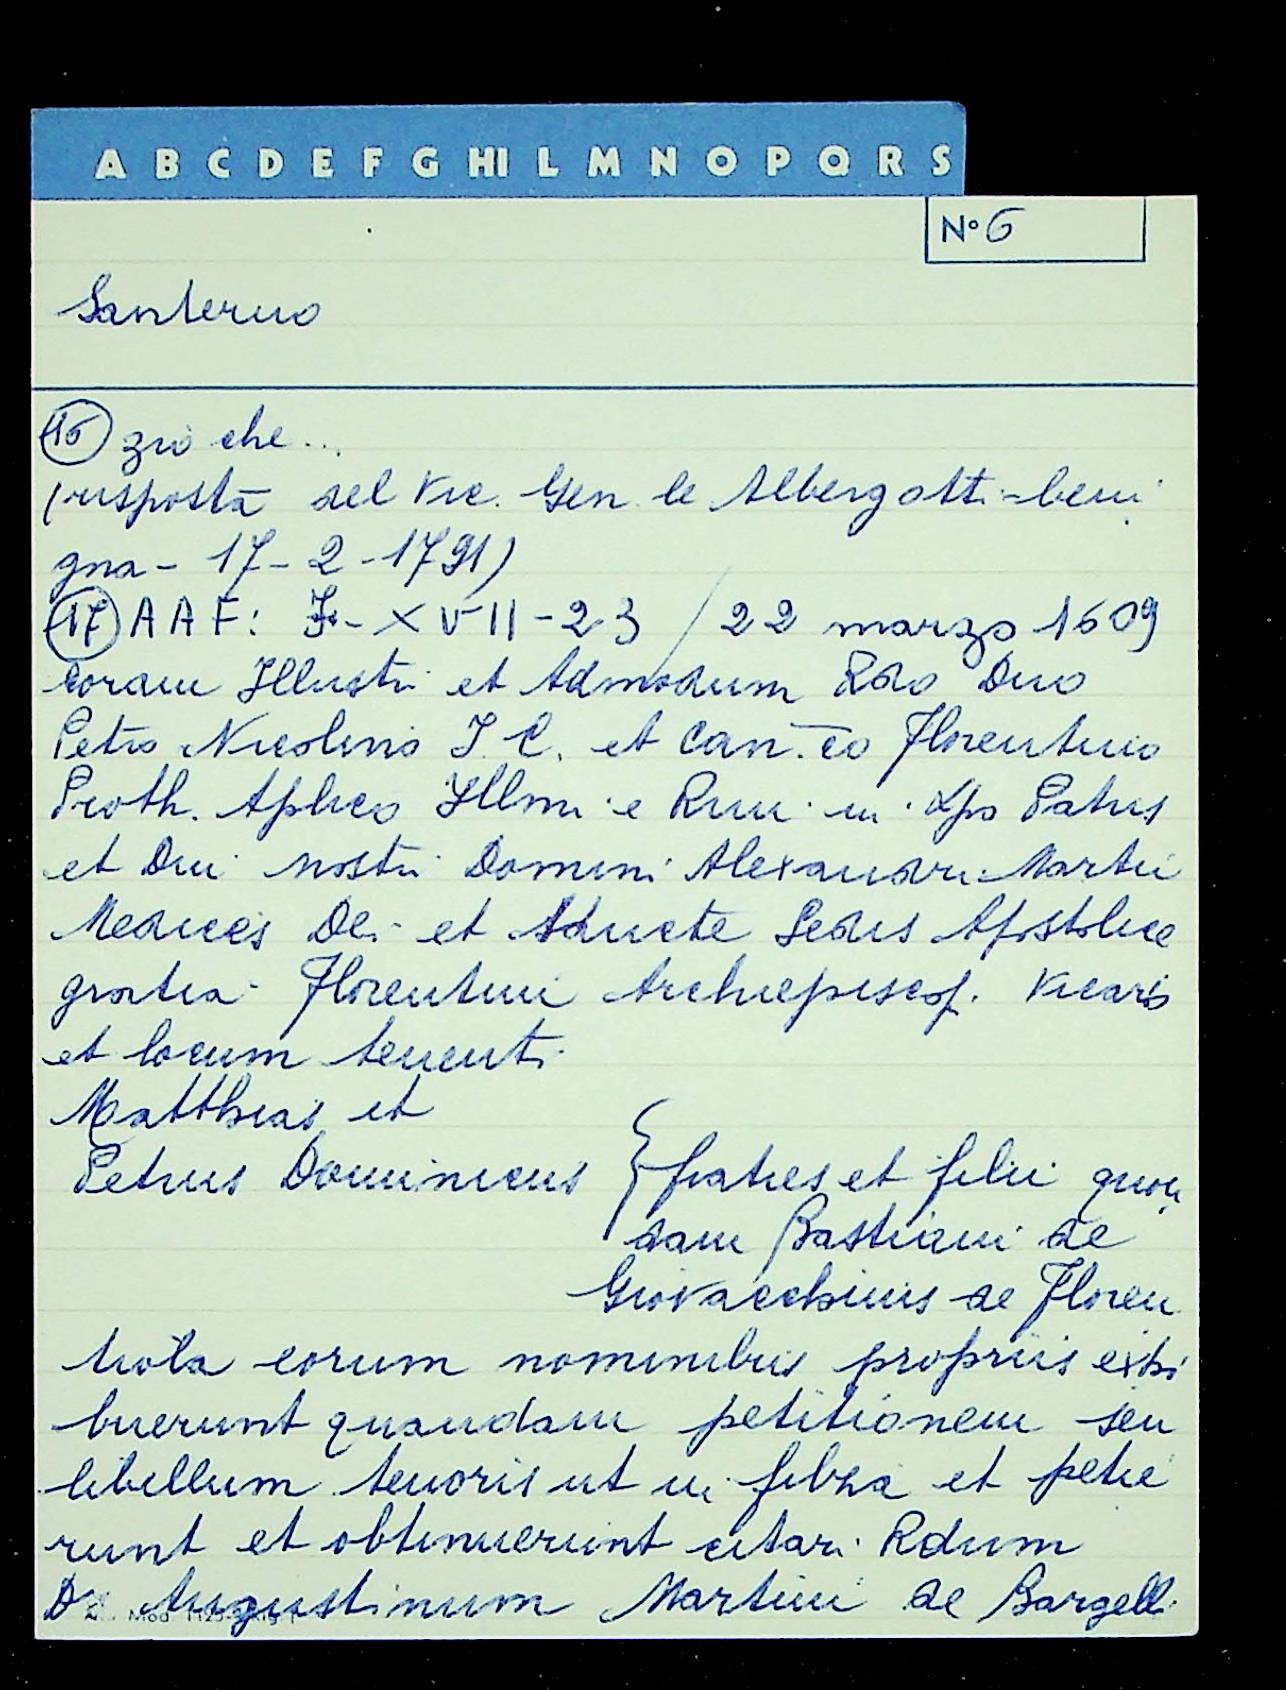 A B C D E F G HI L M N O P Q R S
N° 6
Santerno
(16) zio che...
(risposta del Vic. Gen.le Albergotti - beni
gna - 17-2-1791)
(17) A A F: F-XVII-23 / 22 marzo 1609
coram Illustri et Admodum Rdo Dno
Petro Nicolino J.C. et Can.co Florentino
Proth. Aplico Illmi e Rmi in Xpo Patris
et Dni nostri Domini Alexandri Martii
Medices Dei et Sancte Sedis Apostolice
gratia Florentini Archiepiscop. Vicario
et locum tenenti
Matthias et
Petrus Dominicus } fratres et filii quon
dam Bastiani de
Giovacchinis de Floren
tiola eorum nominibus propriis exhi
buerunt quandam petitionem seu
libellum tenoris ut in filza et petie
runt et obtinuerunt citari Rdum
D. Augustinum Martini de Bargelli